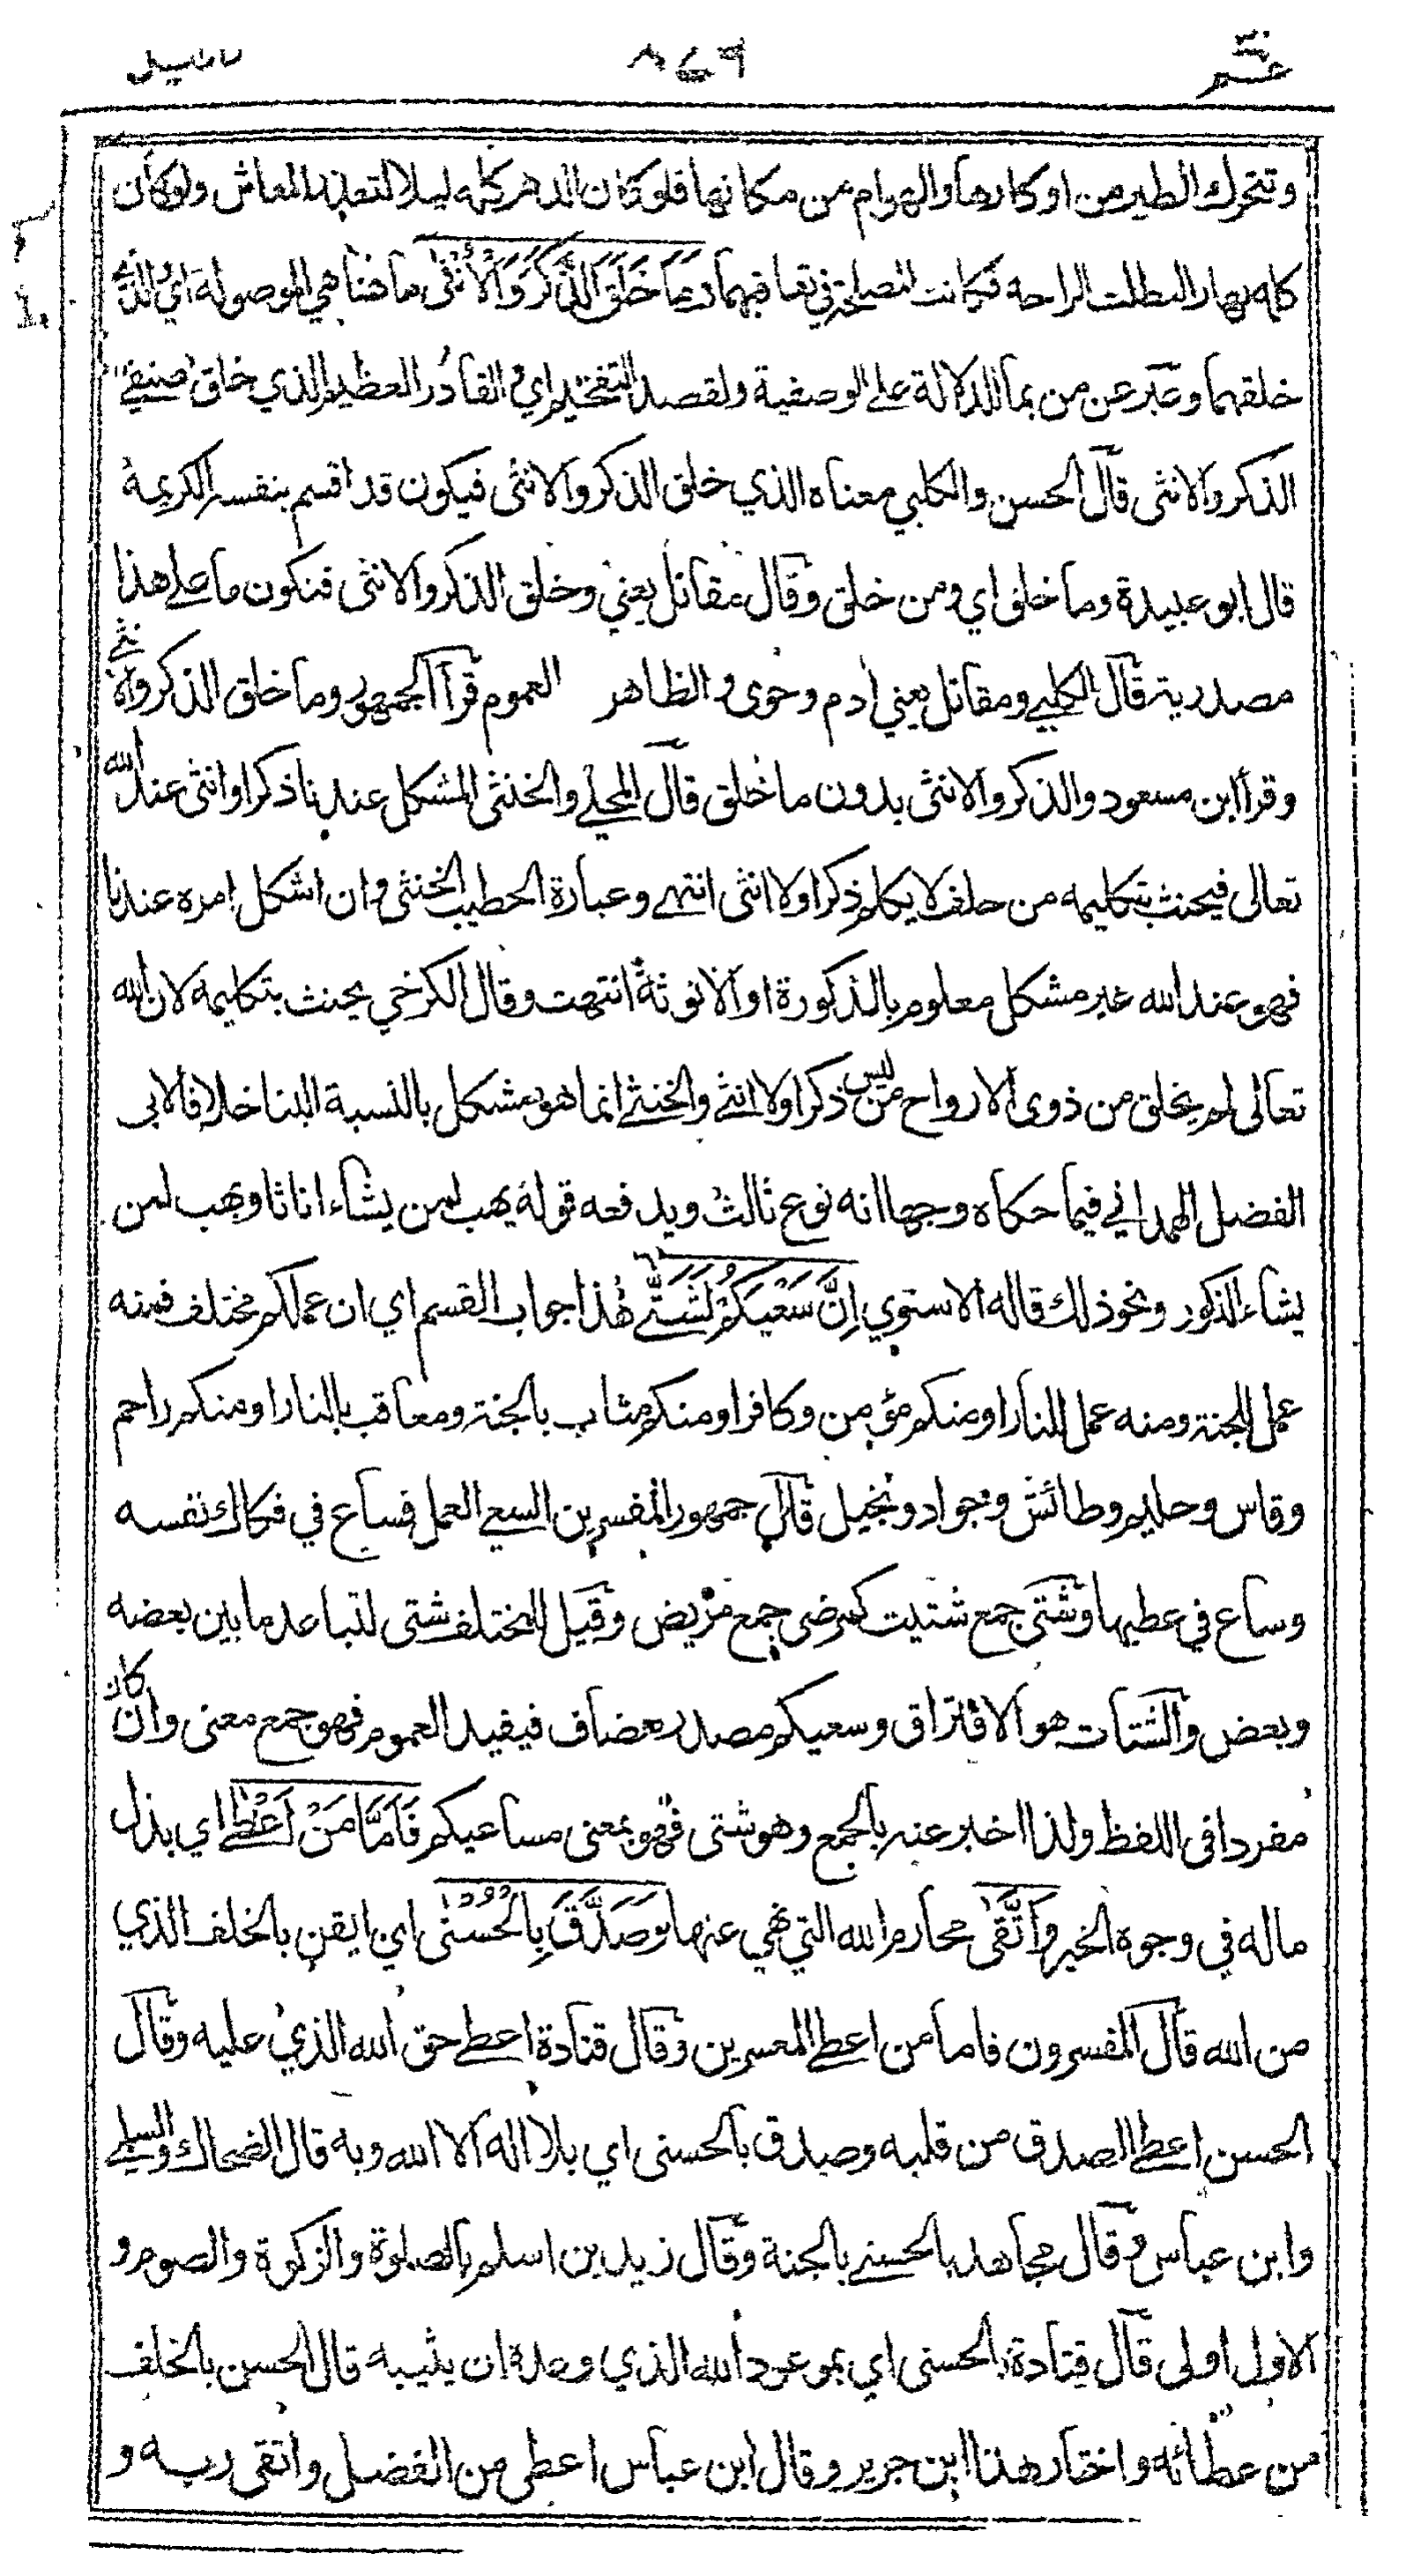 عم ٨٤٩ الليل
وتتحرك الطير من اوكارها والهوام من مكانها فلو كان الدهر كله ليلا لتعذر المعاش ولو كان
كله نهارا لبطلت الراحة فكانت المصلحة في تعاقبهما وَمَا خَلَقَ الذَّكَرَ وَالْأُنْثَى ما هنا هي الموصولة اي والذي
خلقهما وعبر عن من بما للدلالة على الوصفية ولقصد التفخيم اي والقادر العظيم الذي خلق صنفي
الذكر والانثى قال الحسن والكلبي معناه الذي خلق الذكر والانثى فيكون قد اقسم بنفسه الكريمة
قال ابو عبيدة وما خلق اي ومن خلق وقال مقاتل يعني وخلق الذكر والانثى فتكون ما على هذا
مصدرية قال الكلبي ومقاتل يعني ادم وحوى والظاهر العموم قرأ الجمهور وما خلق الذكر والانثى
وقرأ ابن مسعود والذكر والانثى بدون ما خلق قال المحلي والخنثى المشكل عندنا ذكر او انثى عند الله
تعالى فيحنث بتكليمه من حلف لا يكلم ذكرا ولا انثى انتهى وعبارة الخطيب الخنثى وان اشكل امره عندنا
فهو عند الله غير مشكل معلوم بالذكورة او الانوثة انتهت وقال الكرخي يحنث بتكليمه لان الله
تعالى لم يخلق من ذوى الارواح من ليس ذكرا ولا انثى والخنثى انما هو مشكل بالنسبة الينا خلافا لابى
الفضل الهمداني فيما حكاه وجها انه نوع ثالث ويدفعه قوله يهب لمن يشاء اناثا ويهب لمن
يشاء الذكور ونحو ذلك قاله الاسنوي إِنَّ سَعْيَكُمْ لَشَتَّى هذا جواب القسم اي ان عملكم مختلف فمنه
عمل للجنة ومنه عمل للنار او منكم مؤمن وكافر او منكم مثاب بالجنة ومعاقب بالنار او منكم راحم
وقاس وحليم وطائش وجواد وبخيل قال جمهور المفسرين السعي العمل فساع في فكاك نفسه
وساع في عطبها وشتى جمع شتيت كمرضى جمع مريض وقيل للمختلف شتى لتباعد ما بين بعضه
وبعض والشتات هو الافتراق وسعيكم مصدر مضاف فيفيد العموم فهو جمع معنى وان كان
مفردا في اللفظ ولذا اخبر عنه بالجمع وهو شتى فهو بمعنى مساعيكم فَأَمَّا مَنْ أَعْطَى اي بذل
ماله في وجوه الخير وَاتَّقَى محارم الله التي نهي عنها وَصَدَّقَ بِالْحُسْنَى اي ايقن بالخلف الذي
من الله قال المفسرون فاما من اعطى المعسرين وقال قتادة اعطى حق الله الذي عليه وقال
الحسن اعطى الصدق من قلبه وصدق بالحسنى اي بلا اله الا الله وبه قال الضحاك والسلمي
وابن عباس وقال مجاهد بالحسنى بالجنة وقال زيد بن اسلم بالصلوة والزكوة والصوم و
الاول اولى قال قتادة بالحسنى اي بموعود الله الذي وعده ان يثيبه قال الحسن بالخلف
من عطائه واختار هذا ابن جرير وقال ابن عباس اعطى من الفضل واتقى ربه و